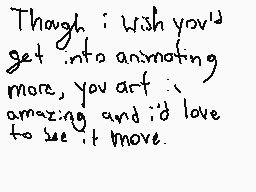 Though i wish you'd
get into animating
more, you art is
amazing and i'd love
to see it move.